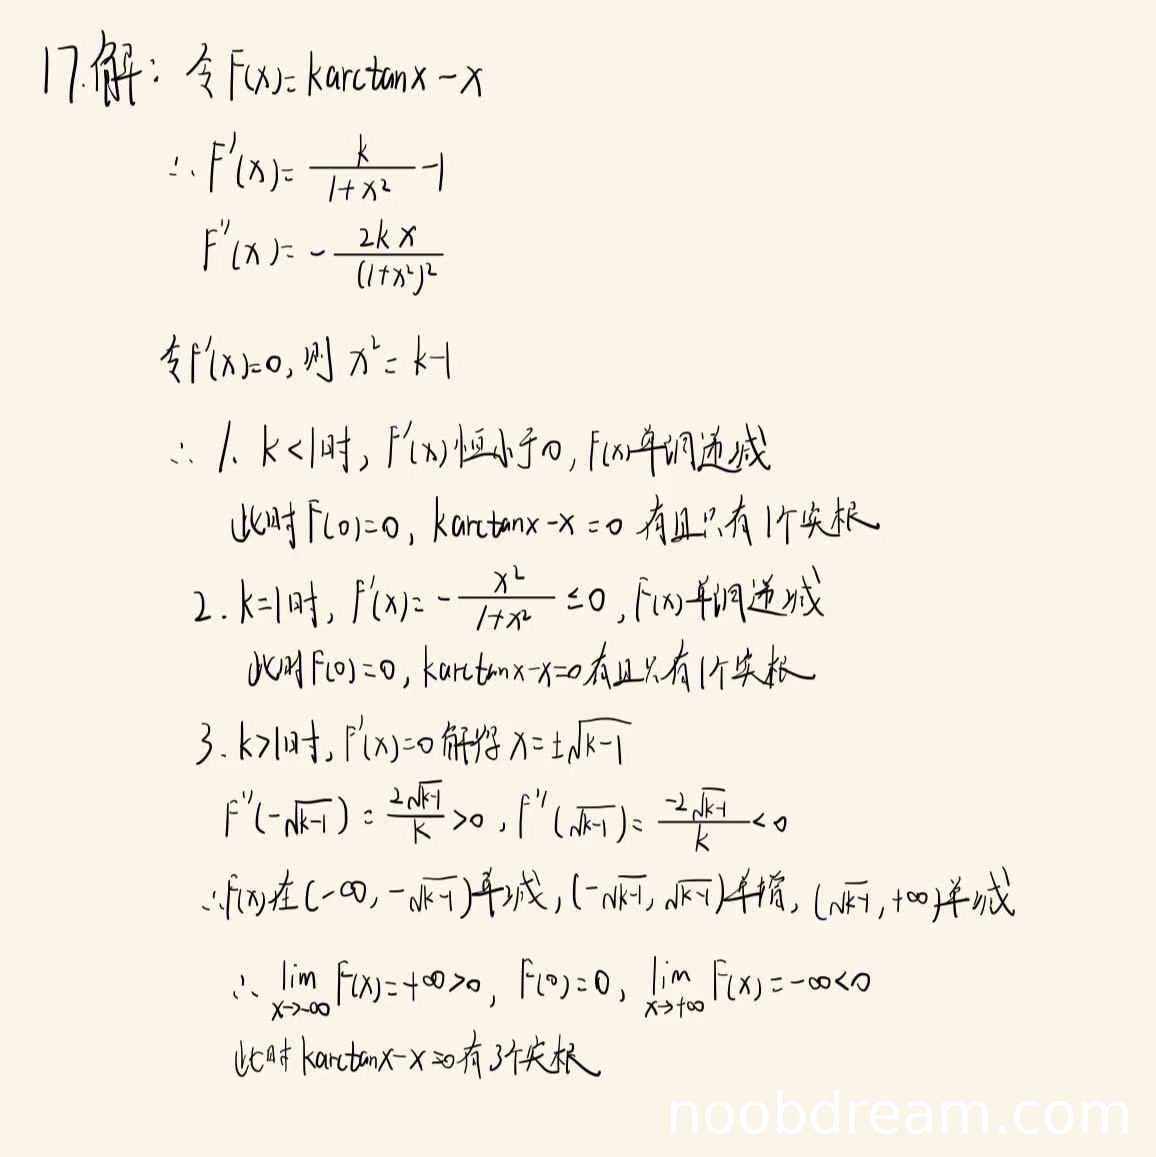 17.解：令F(x)=karctanx-x
∴F'(x)=k/(1+x²)-1
F''(x)=-2kx/(1+x²)²
令F'(x)=0,则 x²=k-1
∴ 1. k<1时, F'(x)恒小于0, F(x)单调递减
此时F(0)=0, karctanx-x=0 有且只有1个实根
2. k=1时, F'(x)=-x²/(1+x²)≤0, F(x)单调递减
此时F(0)=0, karctanx-x=0有且只有1个实根
3. k>1时, F'(x)=0解得 x=±√(k-1)
F''(-√(k-1))=2√(k-1)/k>0, F''(√(k-1))=-2√(k-1)/k<0
∴F(x)在(-∞,-√(k-1))单减,(-√(k-1),√(k-1))单增,(√(k-1),+∞)单减
∴ lim x→-∞ F(x)=+∞>0, F(0)=0, lim x→+∞ F(x)=-∞<0
此时karctanx-x=0有3个实根
noobdream.com